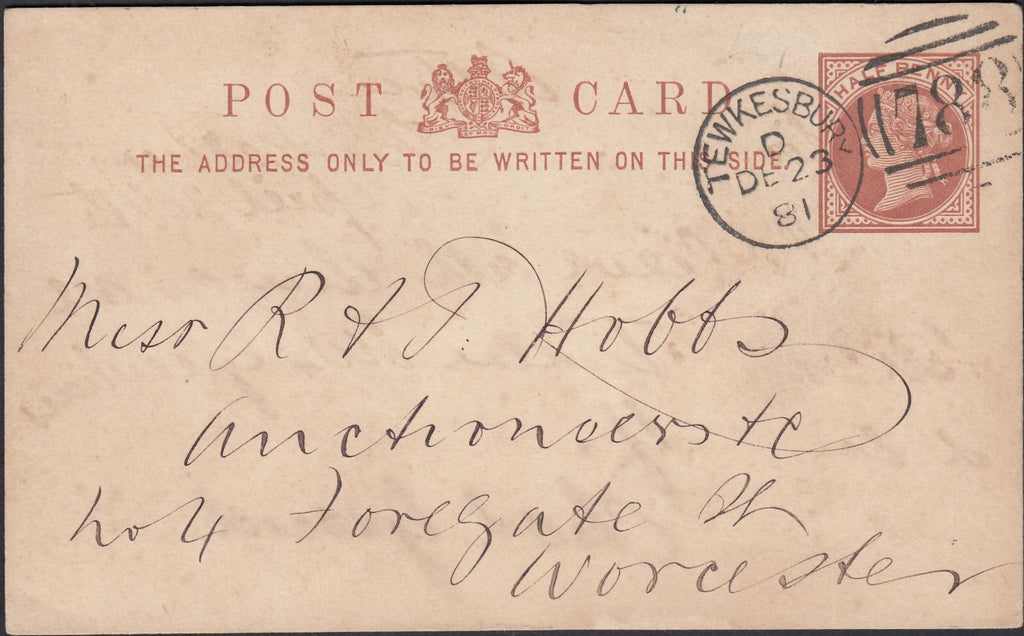 POST CARD
THE ADDRESS ONLY TO BE WRITTEN ON THIS SIDE.
HALF PENNY
TEWKESBURY
D
DE 23
81
788
Messr R & J Hobbs
Auctioneers &c
No 4 Foregate St
Worcester